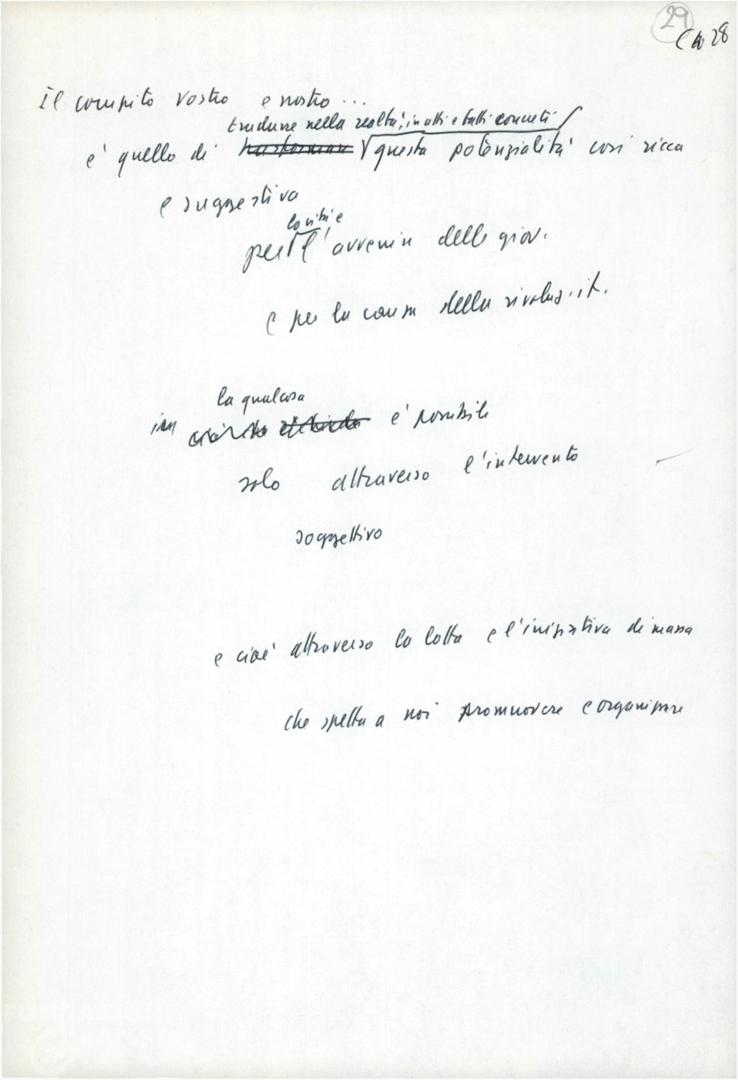 29
28
Il compito vostro e nostro...
tradurre nella realtà, in atti e fatti concreti
è quello di trasformare questa potenzialità così ricca
e suggestiva
per l'avvenire delle giov.
e per la causa della rivoluz. it.
la qualcosa
è possibile
solo attraverso l'intervento
soggettivo
e cioè attraverso la lotta e l'iniziativa di massa
che spetta a noi promuovere e organizzare